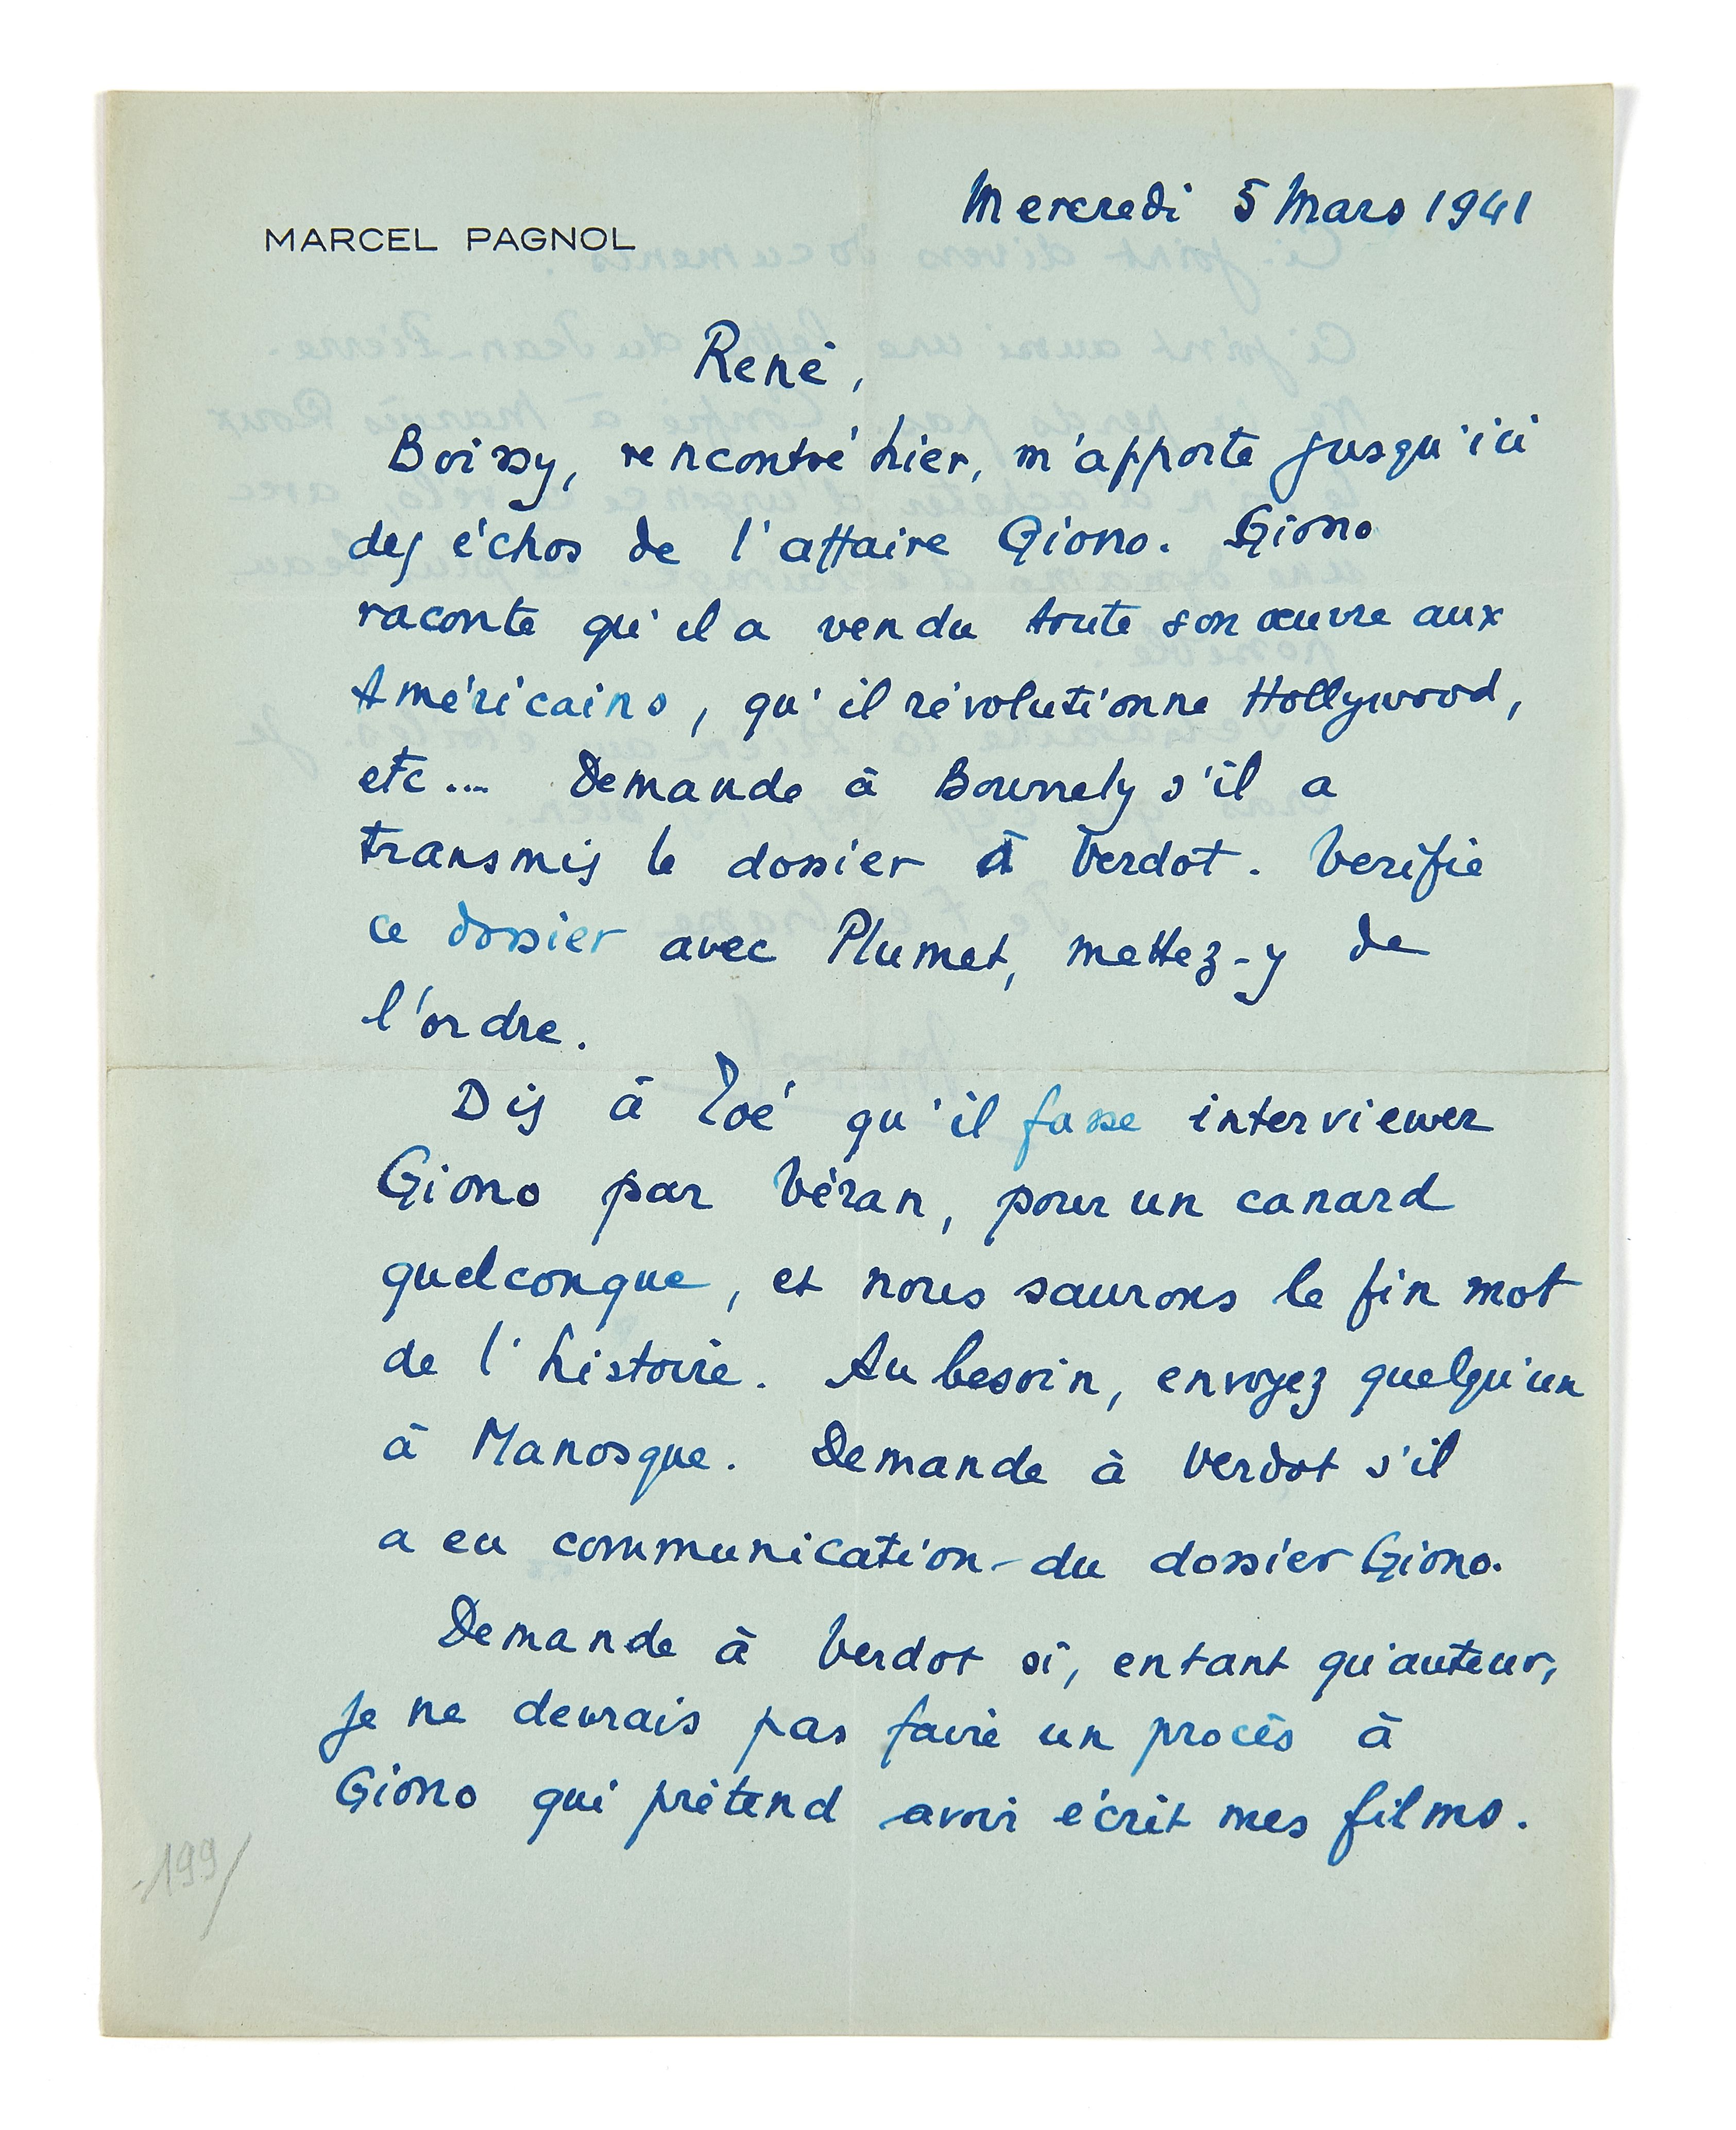 MARCEL PAGNOL
Mercredi 5 Mars 1941
René,
Boissy, rencontré hier, m'apporte jusqu'ici
des échos de l'affaire Giono. Giono
raconte qu'il a vendu toute son œuvre aux
Américains, qu'il révolutionne Hollywood,
etc.... Demande à Bourrely s'il a
transmis le dossier à Verdot. Vérifie
ce dossier avec Plumet, mettez-y de
l'ordre.
Dis à Zoé qu'il fasse interviewer
Giono par Véran, pour un canard
quelconque, et nous saurons le fin mot
de l'histoire. Au besoin, envoyez quelqu'un
à Manosque. Demande à Verdot s'il
a eu communication du dossier Giono.
Demande à Verdot si, en tant qu'auteur,
je ne devrais pas faire un procès à
Giono qui prétend avoir écrit mes films.
199/